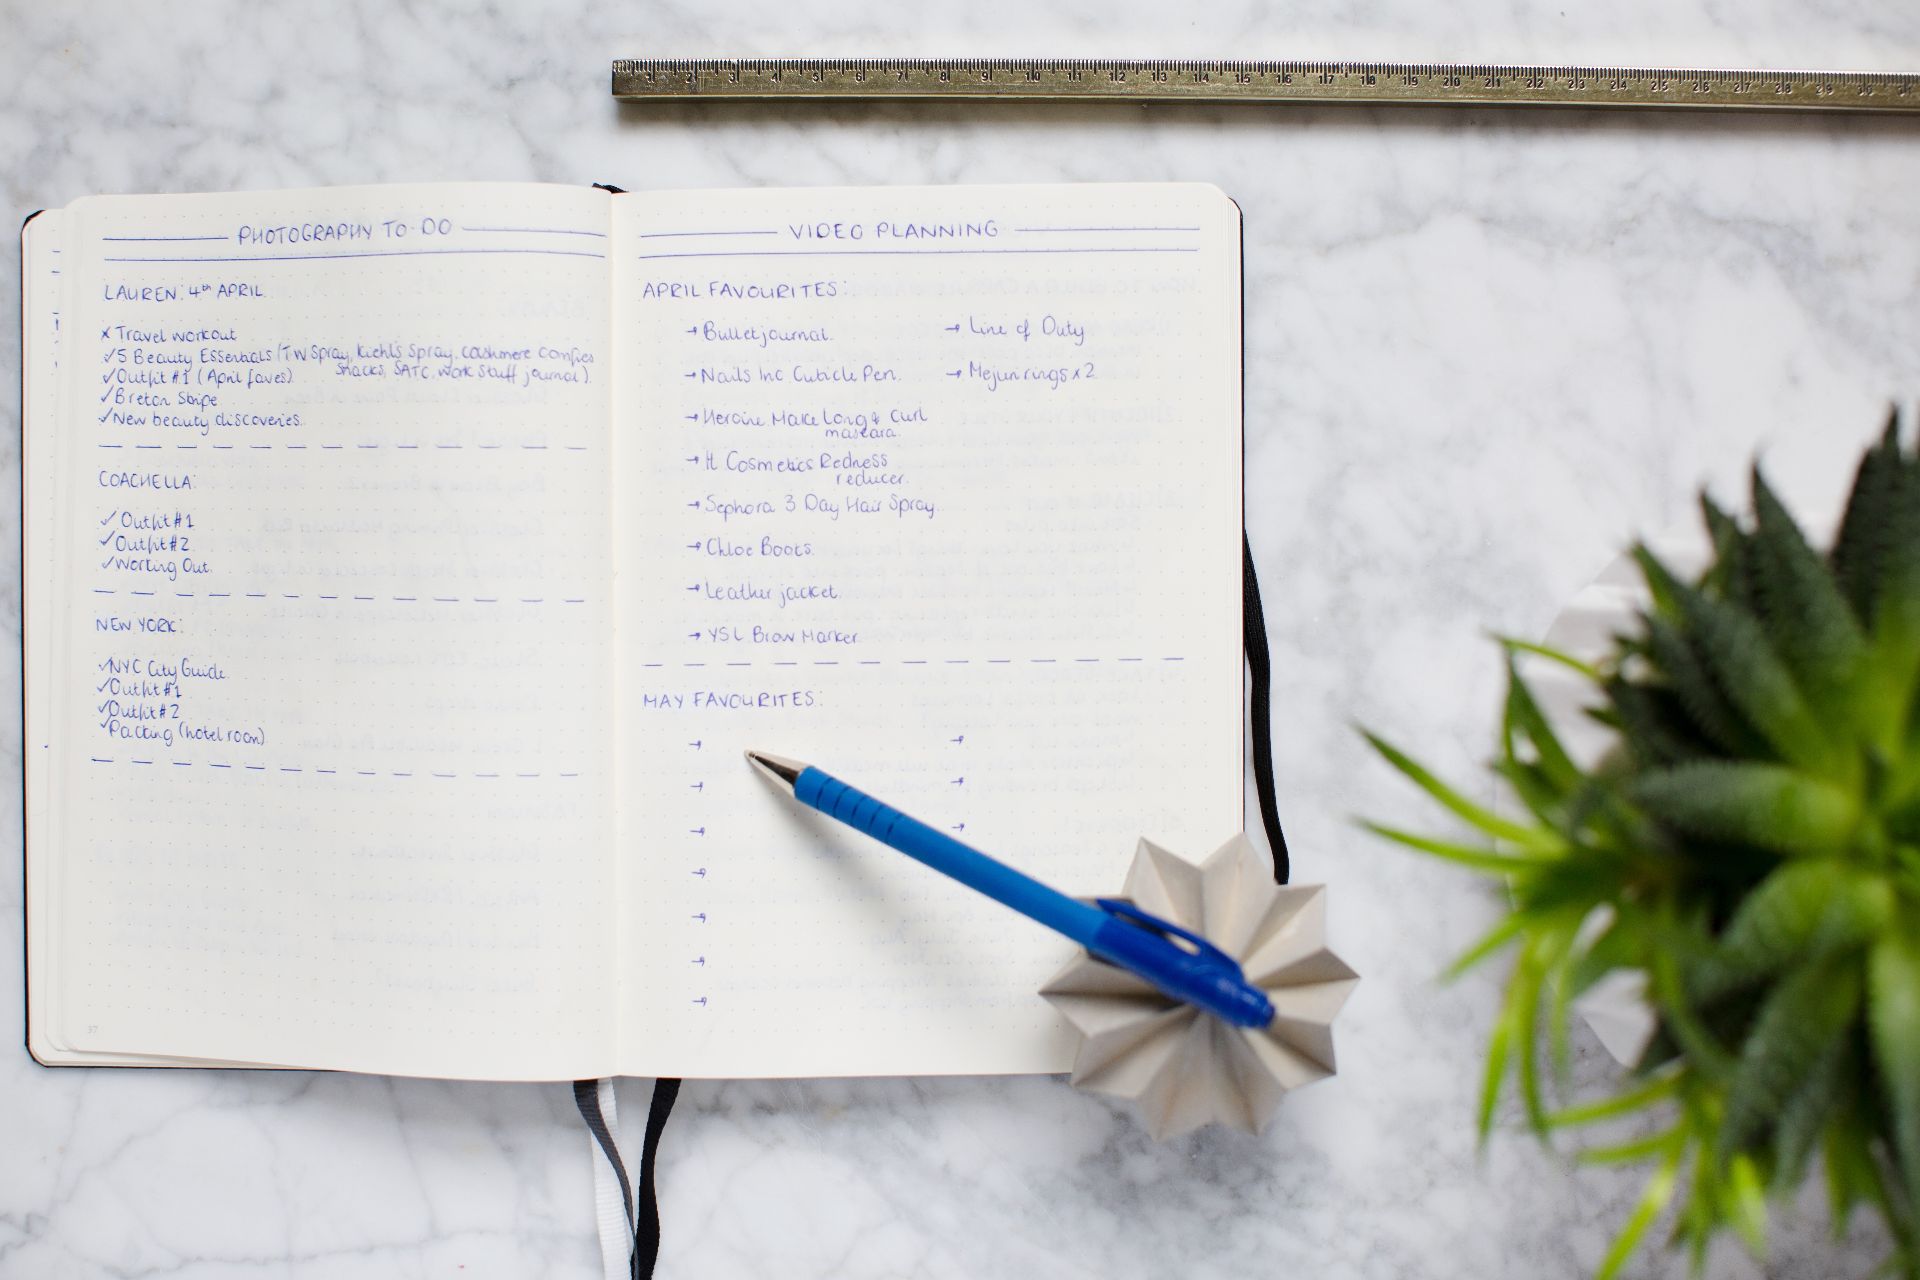 PHOTOGRAPHY TO DO
LAUREN: 4th APRIL
x Travel workout
✓5 Beauty Essentials (TW Spray, Kiehl's Spray, cashmere comfies
snacks, SATC, work stuff journal).
✓Outfit #1 (April faves)
✓Breton Stripe
✓New beauty discoveries.
COACHELLA:
✓Outfit #1
✓Outfit #2
✓Working Out.
NEW YORK:
✓NYC City Guide
✓Outfit #1
✓Outfit #2
✓Packing (hotel room)
37
VIDEO PLANNING
APRIL FAVOURITES:
→ Bullet journal. → Line of Duty
→ Nails Inc Cuticle Pen. → Mejuri rings x 2
→ Heroine Make Long & Curl
mascara.
→ It Cosmetics Redness
reducer.
→ Sephora 3 Day Hair Spray.
→ Chloe Boots.
→ Leather jacket.
→ YSL Brow Marker
MAY FAVOURITES:
1 2 3 4 5 6 7 8 9 10 11 12 13 14 15 16 17 18 19 20 21 22 23 24 25 26 27 28 29 30 31